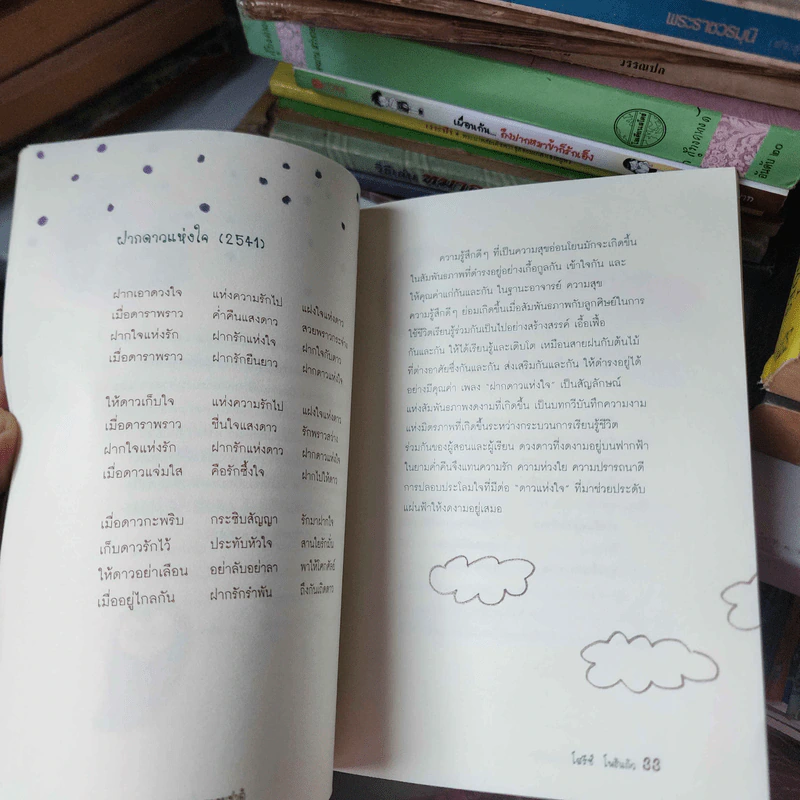 พระราชวรมุนี
วรรณปก
เผื่อนกัน... ถึงปากหมาข้าก็รักเอ็ง
อันดับ ๒๐
ฝากดาวแห่งใจ (2541)
ฝากเอาดวงใจ แห่งความรักไป แฝงใจแห่งดาว
เมื่อดาราพราว ค่ำคืนแสงดาว สวยพราวกระจ่าง
ฝากใจแห่งรัก ฝากรักแห่งใจ ฝากใจกับดาว
เมื่อดาราพราว ฝากรักยืนยาว ฝากดาวแห่งใจ
ให้ดาวเก็บใจ แห่งความรักไป แฝงใจแห่งดาว
เมื่อดาราพราว ชื่นใจแสงดาว รักพราวสว่าง
ฝากใจแห่งรัก ฝากรักแห่งดาว ฝากดาวแห่งใจ
เมื่อดาวแจ่มใส คือรักซึ้งใจ ฝากไปให้ดาว
เมื่อดาวกะพริบ กระซิบสัญญา รักมาฝากใจ
เก็บดาวรักไว้ ประทับหัวใจ สานใยรักมั่น
ให้ดาวอย่าเลือน อย่าลับอย่าลา พาให้โศกศัลย์
เมื่ออยู่ไกลกัน ฝากรักรำพัน ถึงกันเถิดดาว
ความรู้สึกดีๆ ที่เป็นความสุขอ่อนโยนมักจะเกิดขึ้น
ในสัมพันธภาพที่ดำรงอยู่อย่างเกื้อกูลกัน เข้าใจกัน และ
ให้คุณค่าแก่กันและกัน ในฐานะอาจารย์ ความสุข
ความรู้สึกดีๆ ย่อมเกิดขึ้นเมื่อสัมพันธภาพกับลูกศิษย์ในการ
ใช้ชีวิตเรียนรู้ร่วมกันเป็นไปอย่างสร้างสรรค์ เอื้อเฟื้อ
กันและกัน ให้ได้เรียนรู้และเติบโต เหมือนสายฝนกับต้นไม้
ที่ต่างอาศัยซึ่งกันและกัน ส่งเสริมกันและกัน ให้ดำรงอยู่ได้
อย่างมีคุณค่า เพลง "ฝากดาวแห่งใจ" เป็นสัญลักษณ์
แห่งสัมพันธภาพงดงามที่เกิดขึ้น เป็นบทกวีบันทึกความงาม
แห่งมิตรภาพที่เกิดขึ้นระหว่างกระบวนการเรียนรู้ชีวิต
ร่วมกันของผู้สอนและผู้เรียน ดวงดาวที่งดงามอยู่บนฟากฟ้า
ในยามค่ำคืนจึงแทนความรัก ความห่วงใย ความปรารถนาดี
การปลอบประโลมใจที่มีต่อ "ดาวแห่งใจ" ที่มาช่วยประดับ
แผ่นฟ้าให้งดงามอยู่เสมอ
33